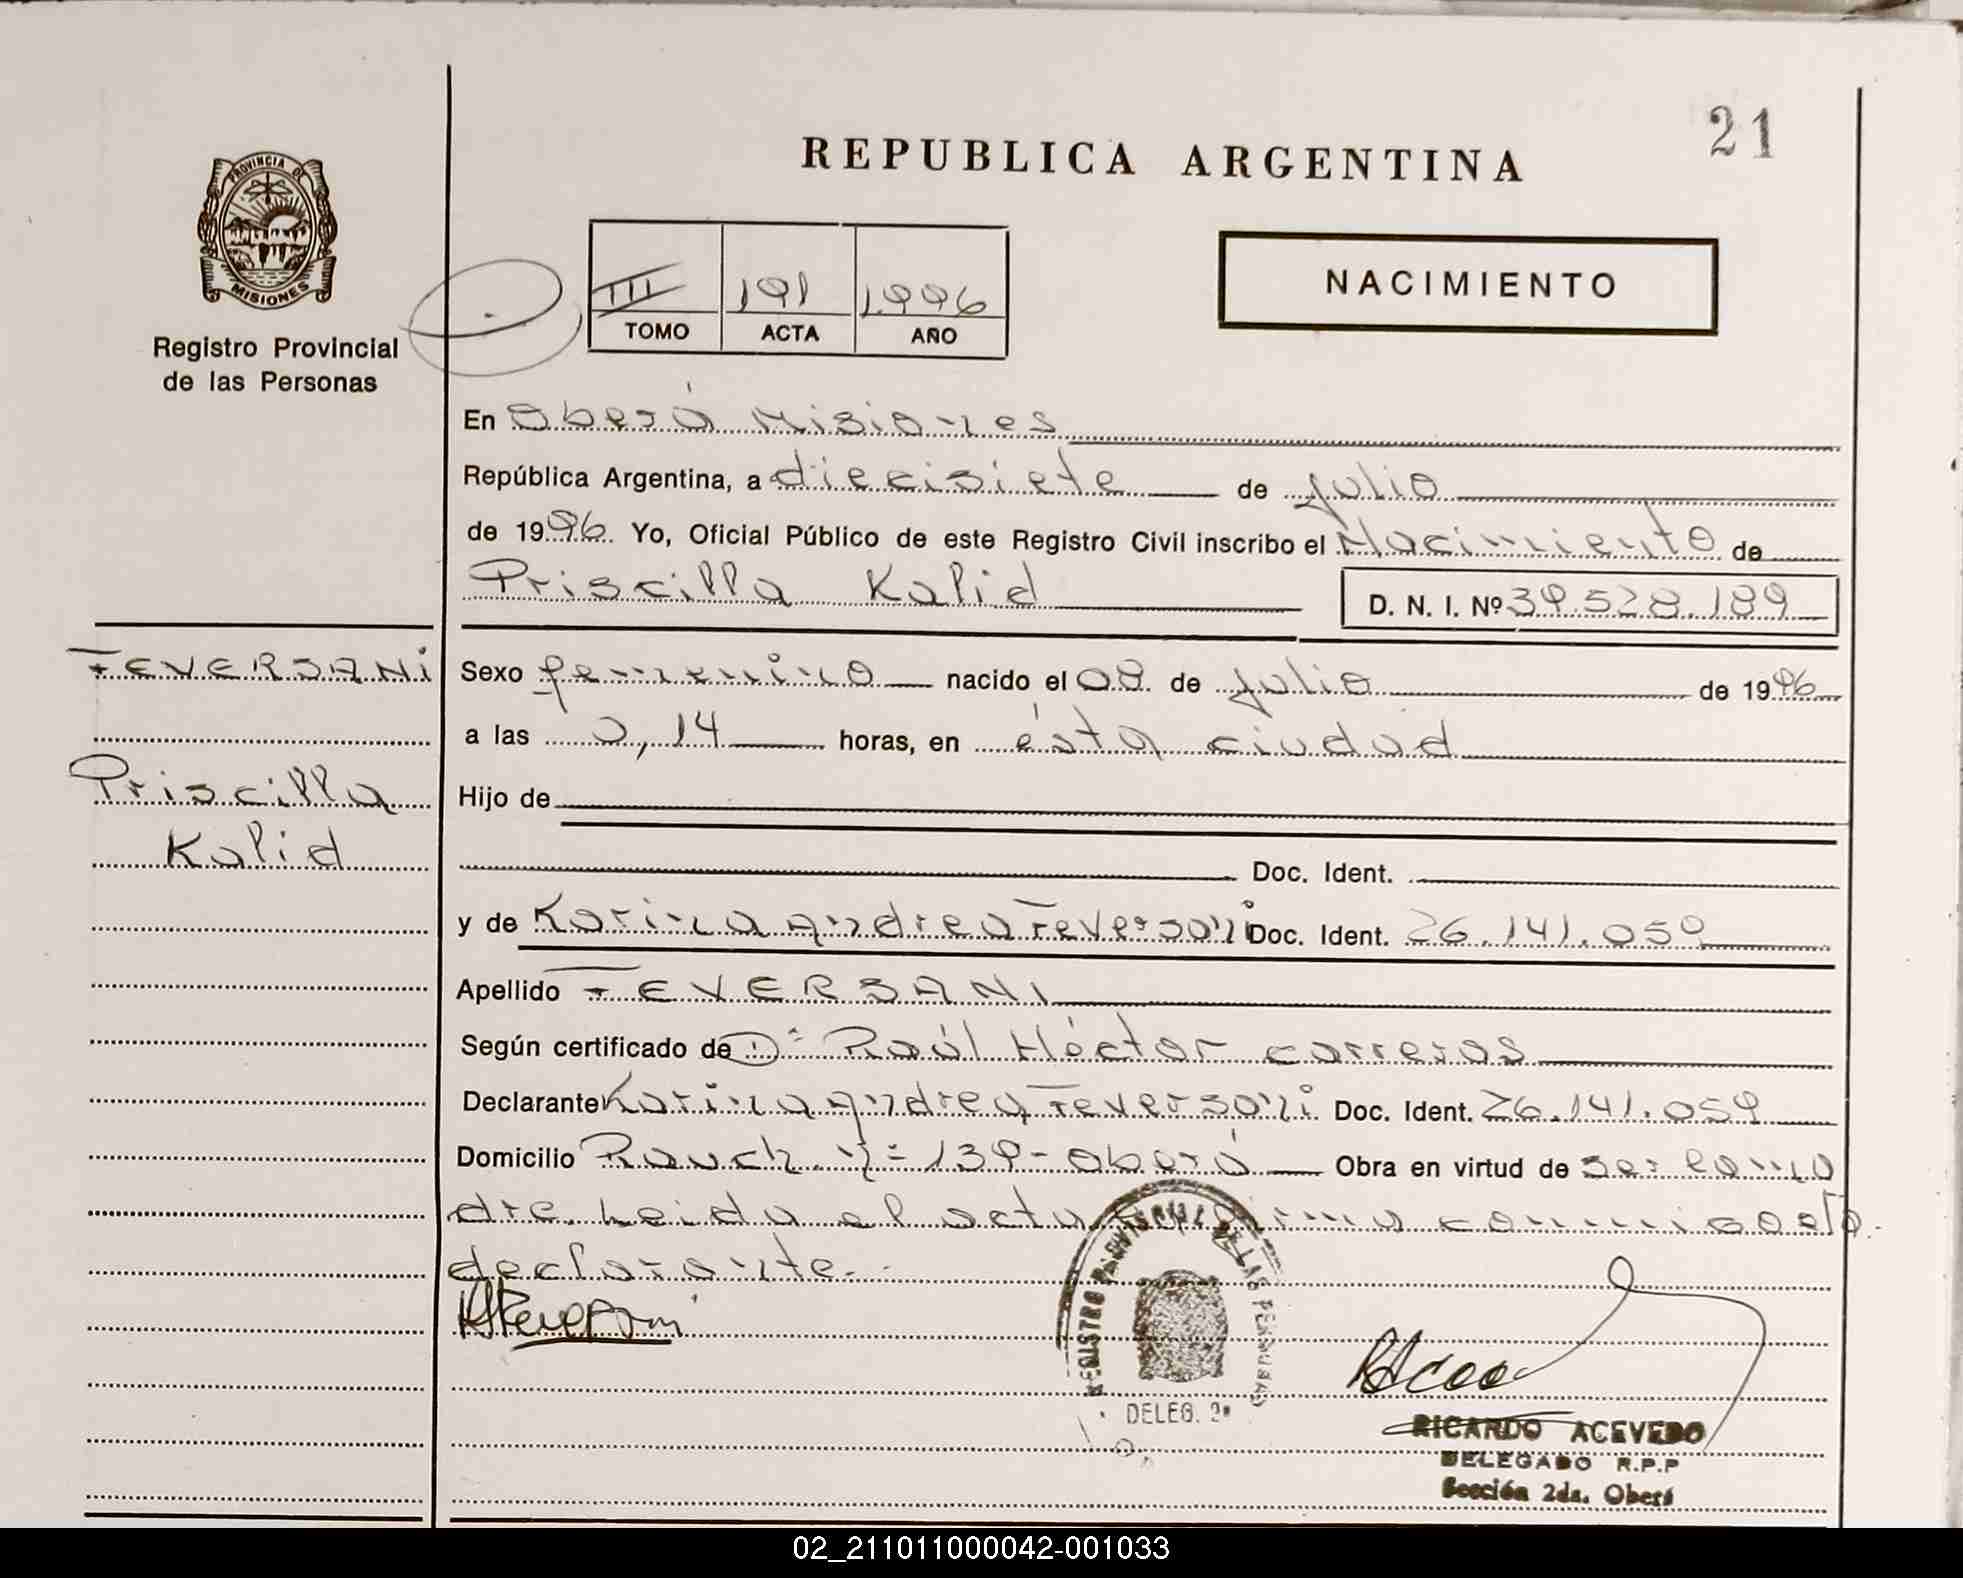 21
REPUBLICA ARGENTINA
PROVINCIA DE
MISIONES
Registro Provincial
de las Personas
III 191 1.996
TOMO ACTA AÑO
NACIMIENTO
En Oberá Misiones
República Argentina, a diecisiete de julio
de 1996. Yo, Oficial Público de este Registro Civil inscribo el Nacimiento de
Priscilla Kalid
D. N. I. Nº 39.528.189
FEVERSANI
Priscilla
Kalid
Sexo femenino nacido el 08 de julio de 1996
a las 2,14 horas, en ésta ciudad
Hijo de
Doc. Ident.
y de Karina Andrea Feversani Doc. Ident. 26.141.059
Apellido FEVERSANI
Según certificado de Dr. Raúl Héctor Carreras
Declarante Karina Andrea Feversani Doc. Ident. 26.141.059
Domicilio Rauch Nº 139 - Oberá Obra en virtud de ser la ma
dre. Leida el acta firma conmigo el/a
declarante.
REGISTRO PROVINCIAL DE LAS PERSONAS
DELEG. 2ª
RICARDO ACEVEDO
DELEGADO R.P.P
Sección 2da. Oberá
02_211011000042-001033